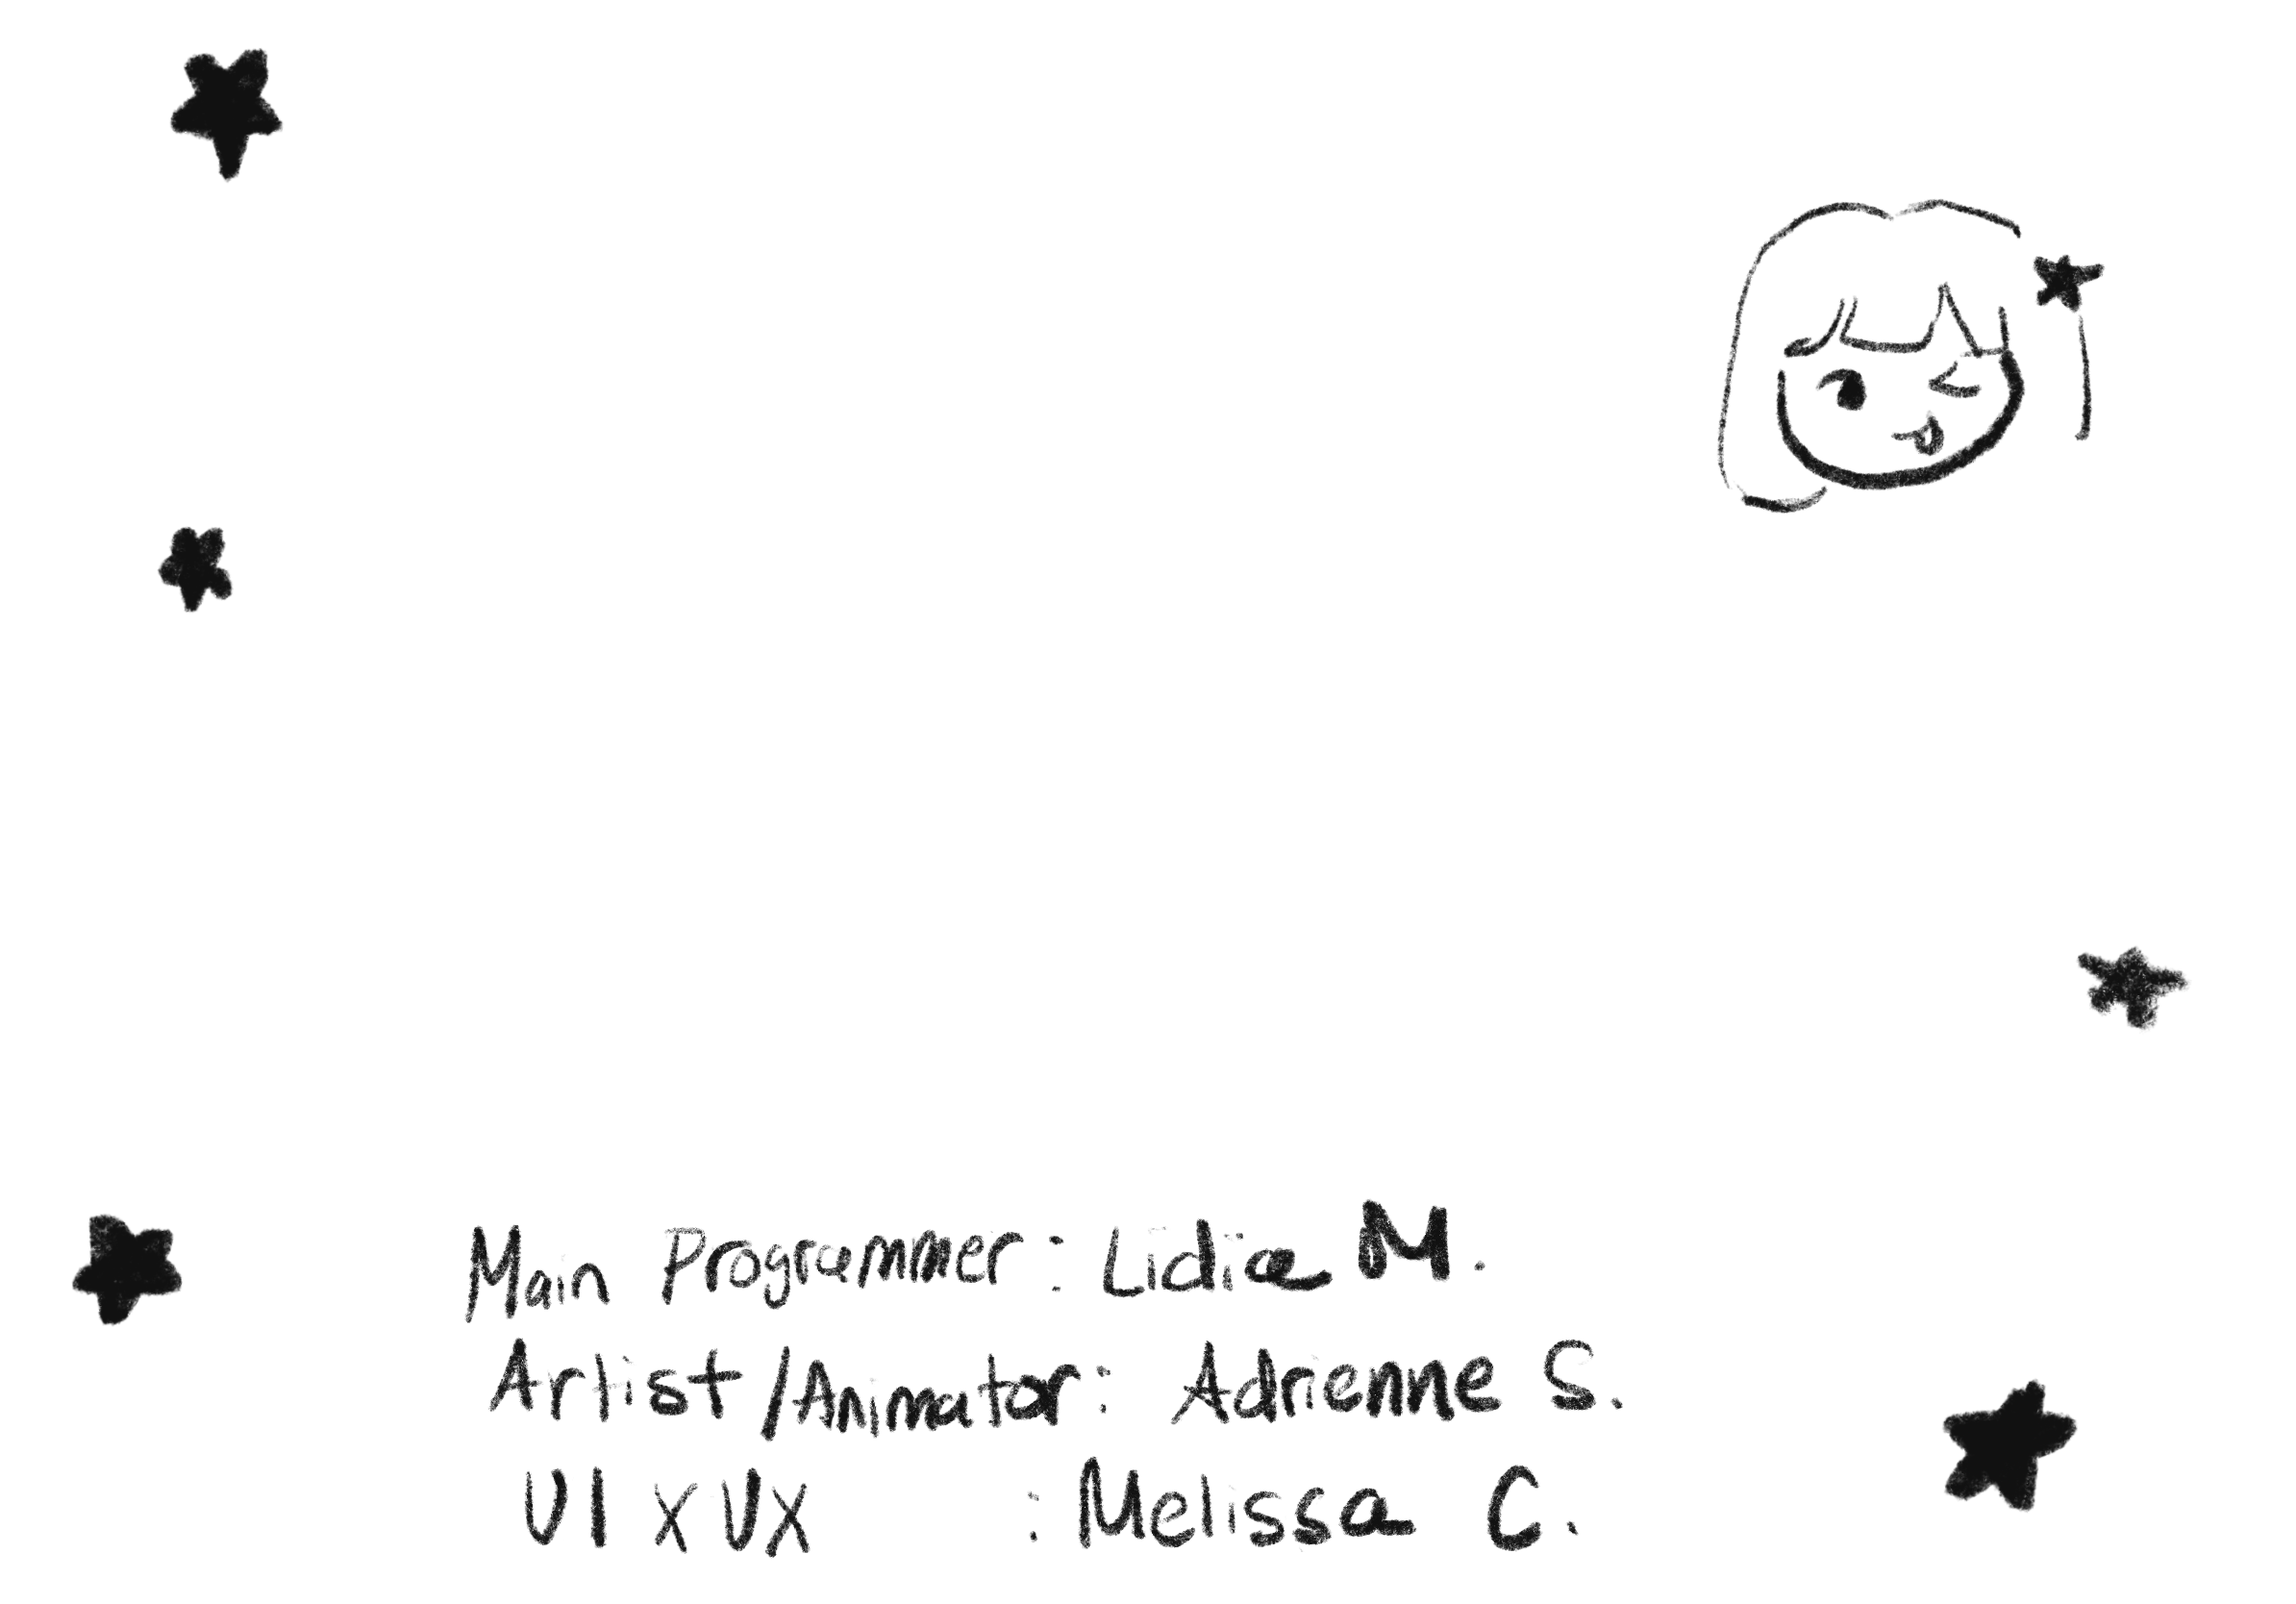 Main Programmer: Lidia M.
Artist/Animator: Adrienne S.
UI x UX : Melissa C.